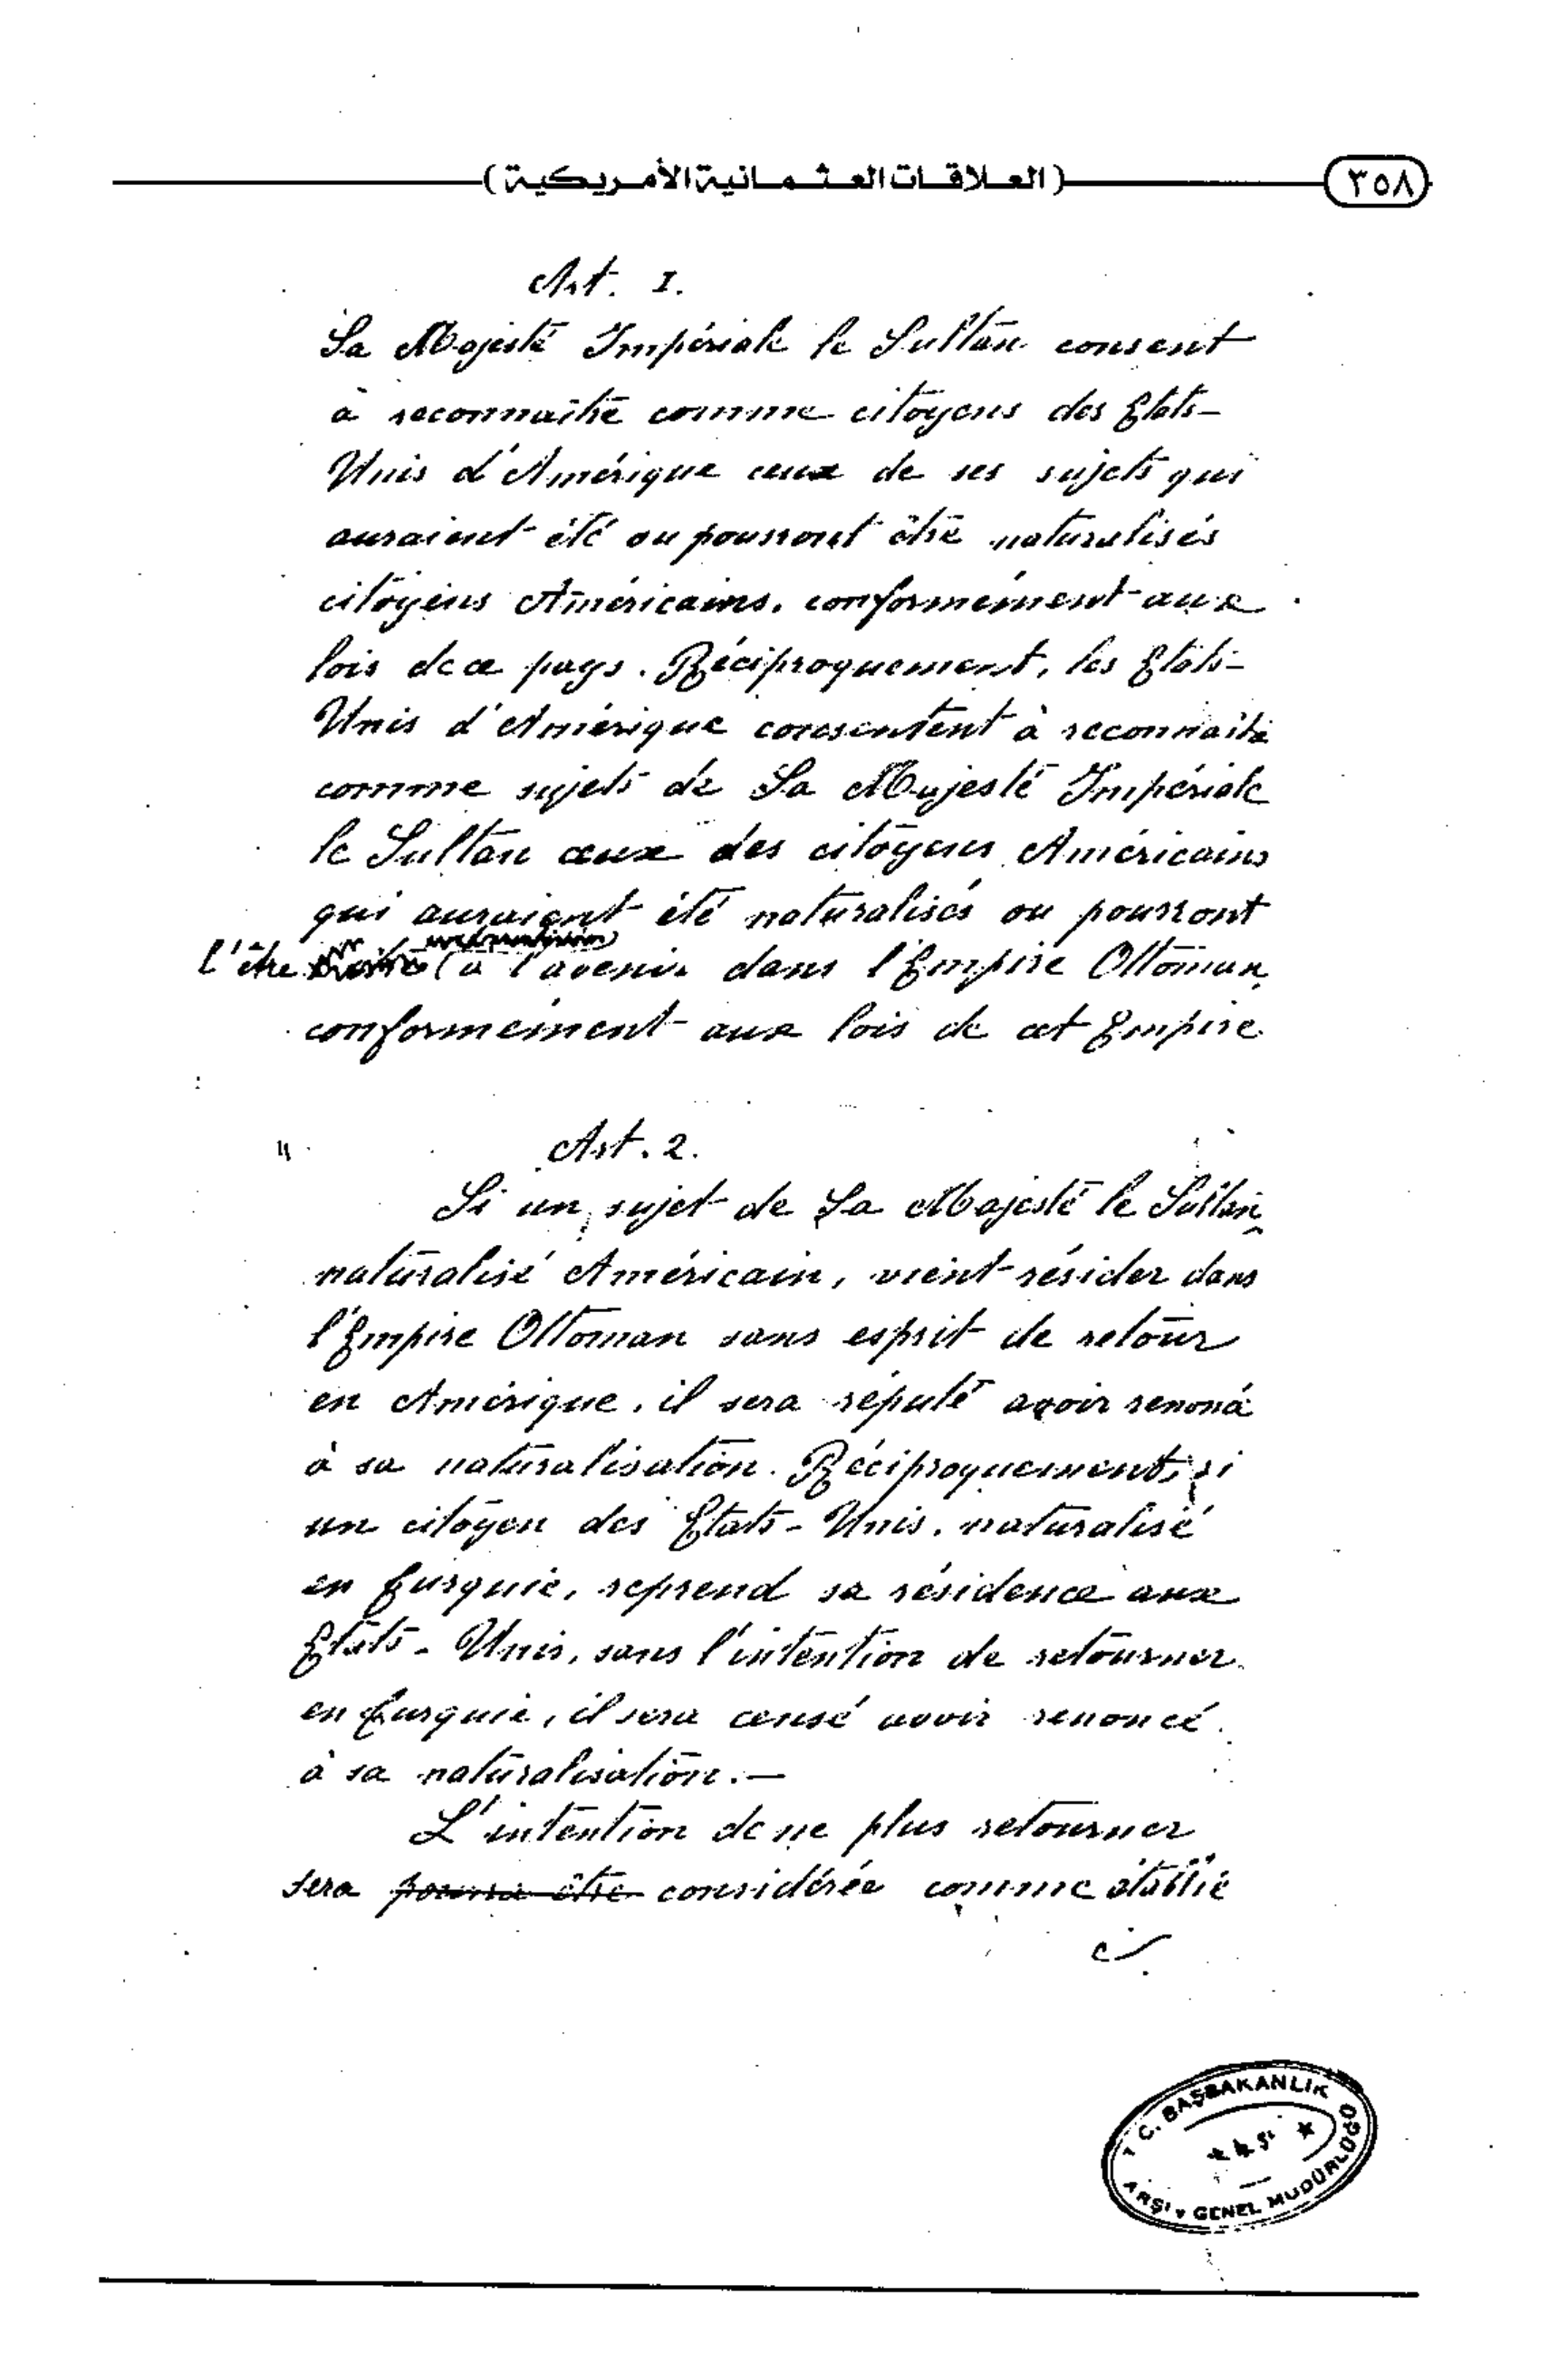 (العلاقات العثمانية الأمريكية)
٣٥٨
Art. 1.
Sa Majesté Impériale le Sultan consent
à reconnaître comme citoyens des Etats-
Unis d'Amérique ceux de ses sujets qui
auraient été ou pourront être naturalisés
citoyens Américains, conformément aux
lois de ce pays. Réciproquement, les Etats-
Unis d'Amérique consentent à reconnaître
comme sujets de Sa Majesté Impériale
le Sultan ceux des citoyens Américains
qui auraient été naturalisés ou pourront
l'être (à l'avenir dans l'Empire Ottoman,
conformément aux lois de cet Empire
Art. 2.
Si un sujet de Sa Majesté le Sultan,
naturalisé Américain, vient résider dans
l'Empire Ottoman sans esprit de retour
en Amérique, il sera réputé avoir renoncé
à sa naturalisation. Réciproquement, si
un citoyen des Etats-Unis, naturalisé
en Turquie, reprend sa résidence aux
Etats-Unis, sans l'intention de retourner
en Turquie, il sera censé avoir renoncé
à sa naturalisation.—
L'intention de ne plus retourner
sera pourra être considérée comme établie
T.C. BAŞBAKANLIK
ARŞİV GENEL MÜDÜRLÜĞÜ